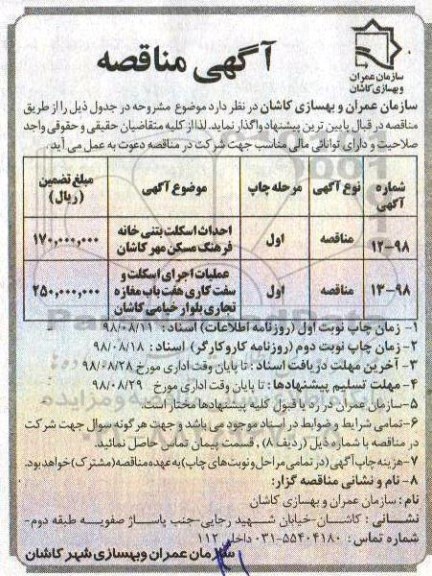 سازمان عمران
وبهسازی کاشان
آگهی مناقصه
سازمان عمران و بهسازی کاشان در نظر دارد موضوع مشروحه در جدول ذیل را از طریق
مناقصه در قبال پایین ترین پیشنهاد واگذار نماید. لذا از کلیه متقاضیان حقیقی و حقوقی واجد
صلاحیت و دارای توانائی مالی مناسب جهت شرکت در مناقصه دعوت به عمل می آید.
شماره آگهی نوع آگهی مرحله چاپ موضوع آگهی مبلغ تضمین (ریال)
۱۲-۹۸ مناقصه اول احداث اسکلت بتنی خانه فرهنگ مسکن مهر کاشان ۱۷۰,۰۰۰,۰۰۰
۱۳-۹۸ مناقصه اول عملیات اجرای اسکلت و سفت کاری هفت باب مغازه تجاری بلوار خیامی کاشان ۲۵۰,۰۰۰,۰۰۰
۱- زمان چاپ نوبت اول (روزنامه اطلاعات) اسناد: ۹۸/۰۸/۱۱
۲- زمان چاپ نوبت دوم (روزنامه کار و کارگر) اسناد: ۹۸/۰۸/۱۸
۳- آخرین مهلت دریافت اسناد: تا پایان وقت اداری مورخ ۹۸/۰۸/۲۸
۴- مهلت تسلیم پیشنهادها: تا پایان وقت اداری مورخ ۹۸/۰۸/۲۹
۵-سازمان عمران در رد یا قبول کلیه پیشنهادها مختار است.
۶-تمامی شرایط و ضوابط در اسناد موجود می باشد و جهت هر گونه سوال جهت شرکت
در مناقصه با شماره ذیل (ردیف ۸) , قسمت پیمان تماس حاصل نمائید.
۷-هزینه چاپ آگهی (در تمامی مراحل و نوبت های چاپ) به عهده مناقصه (مشترک) خواهد بود.
۸- نام و نشانی مناقصه گزار:
نام: سازمان عمران و بهسازی کاشان
نشانی: کاشان-خیابان شهید رجایی-جنب پاساژ صفویه طبقه دوم-
شماره تماس: ۵۵۴۰۴۱۸۰-۰۳۱ داخلی ۱۱۲
سازمان عمران و بهسازی شهر کاشان